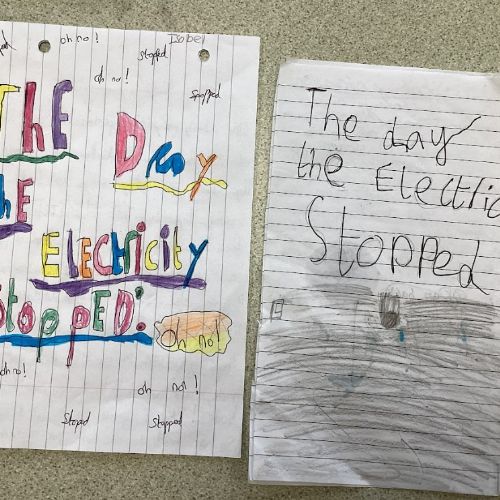 oh no!
Isobel
stopped
oh no!
ThE Day
hE
ElEctricity
StoppED:
Oh no!
oh no!
oh no!
Stoped
Stopped
The day
the Electric
Stopped